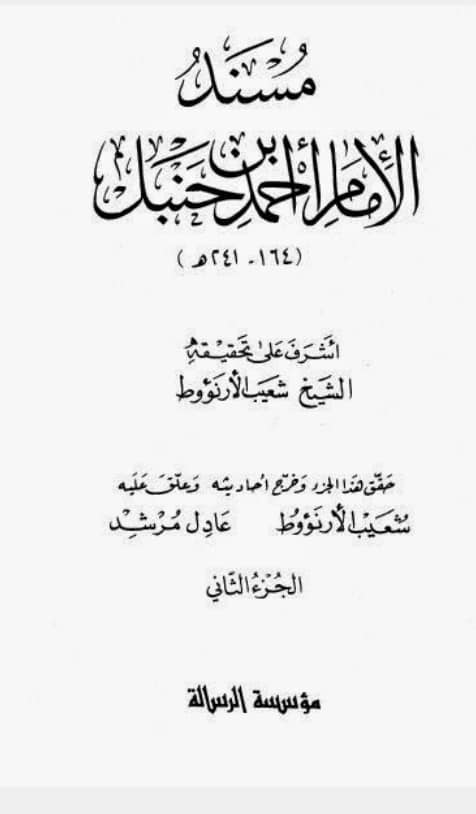 مُسْنَدُ
الإِمَامِ أَحْمَد بْنِ حَنْبَل
(١٦٤ - ٢٤١ ه)
أشْرَفَ عَلىٰ تَحْقِيْقِهِ
الشَيْخ شعَيب الأرنَؤوط
حَقّق هَذا الجزء وَخرّج أحَاديثه وَعلّقَ عَلَيه
شُعَيْب الأرنَؤوُط عَادِل مُرْشِدْ
الجُزْءُ الثّاني
مؤسسة الرسالة